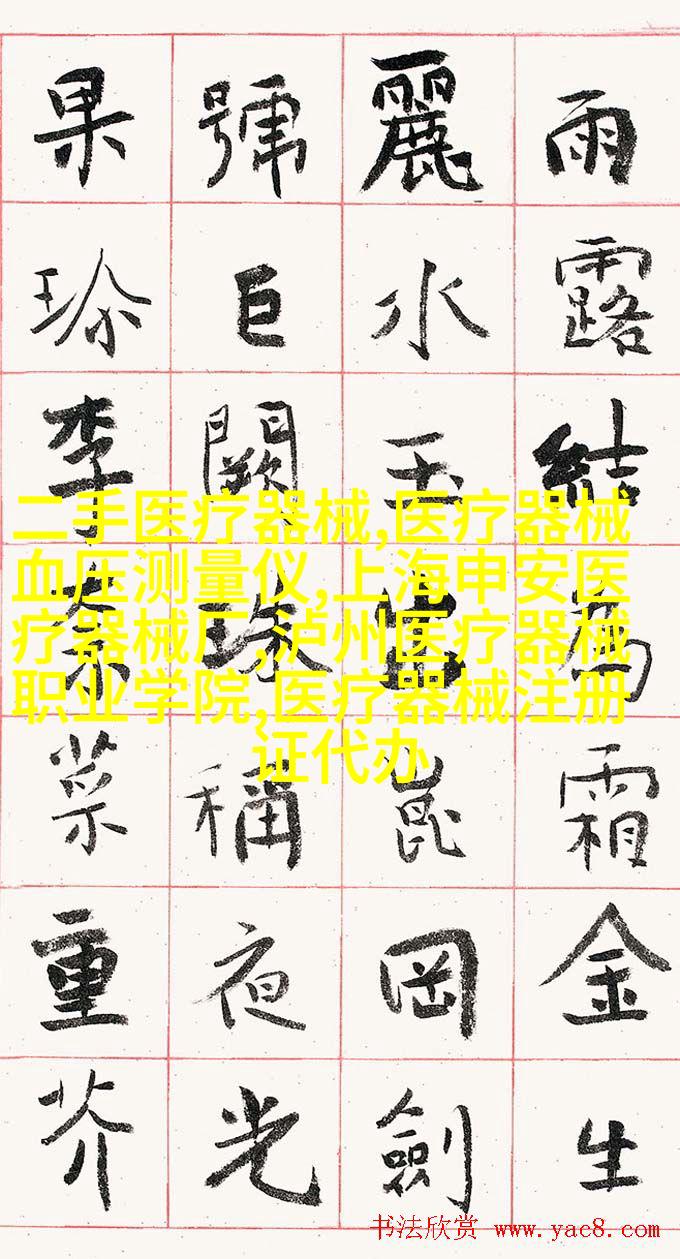 雨露結為霜金生
麗水玉出崑岡劍
號巨闕珠稱夜光
果珎李柰菜重芥
二手医疗器械,医疗器械
血压测量仪,上海申安医
疗器械厂,泸州医疗器械
职业学院,医疗器械注册
证代办
书法欣赏 www.yac8.com